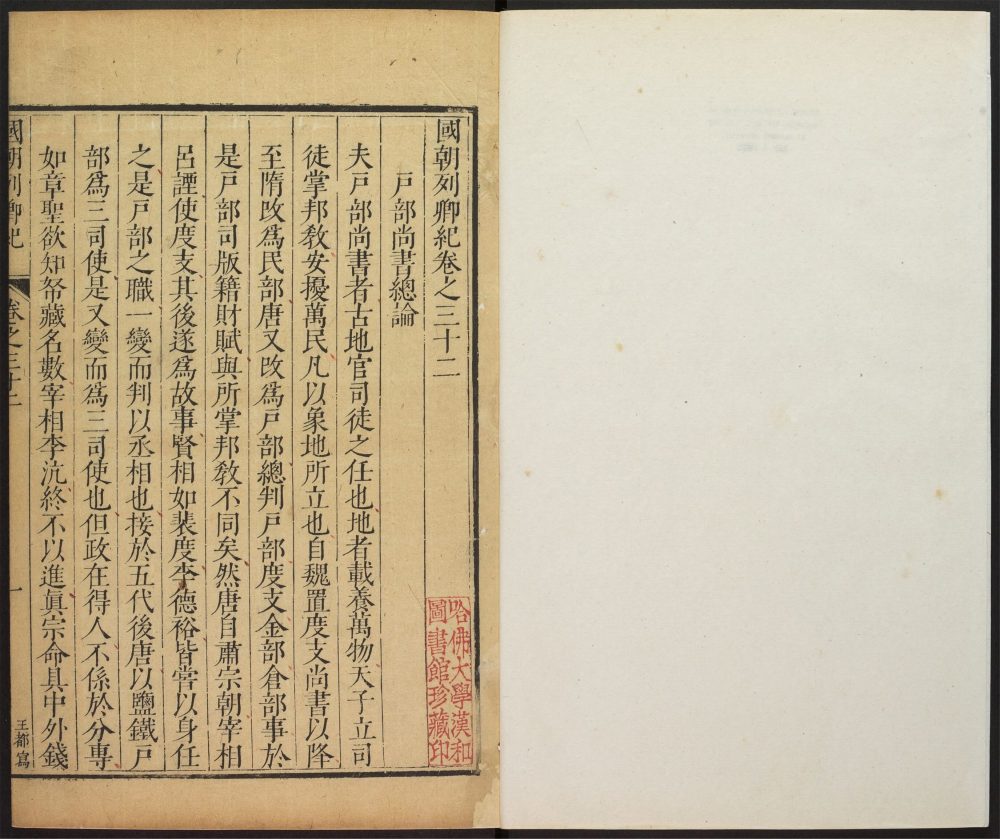 國朝列卿紀卷之三十二
戶部尚書總論
夫戶部尚書者古地官司徒之任也地者載養萬物天子立司
徒掌邦敎安擾萬民凡以象地所立也自魏置度支尚書以降
至隋改爲民部唐又改爲戶部總判戶部度支金部倉部事於
是戶部司版籍財賦與所掌邦敎不同矣然唐自肅宗朝宰相
呂諲使度支其後遂爲故事賢相如裴度李德裕皆嘗以身任
之是戶部之職一變而判以丞相也接於五代後唐以鹽鐵戶
部爲三司使是又變而爲三司使也但政在得人不係於分專
如章聖欲知帑藏名數宰相李沆終不以進眞宗命具中外錢
國朝列卿紀
卷之三十二
一
王都寫
哈佛大學漢和
圖書館珍藏印